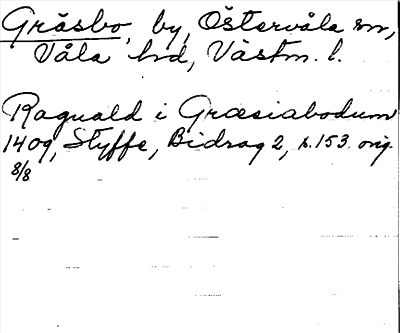 Gräsbo, by, Östervåla sn,
Våla hd, Västm. l.
Raguald i Græsiabodum
1409, Styffe, Bidrag 2, s. 153. orig.
8/8